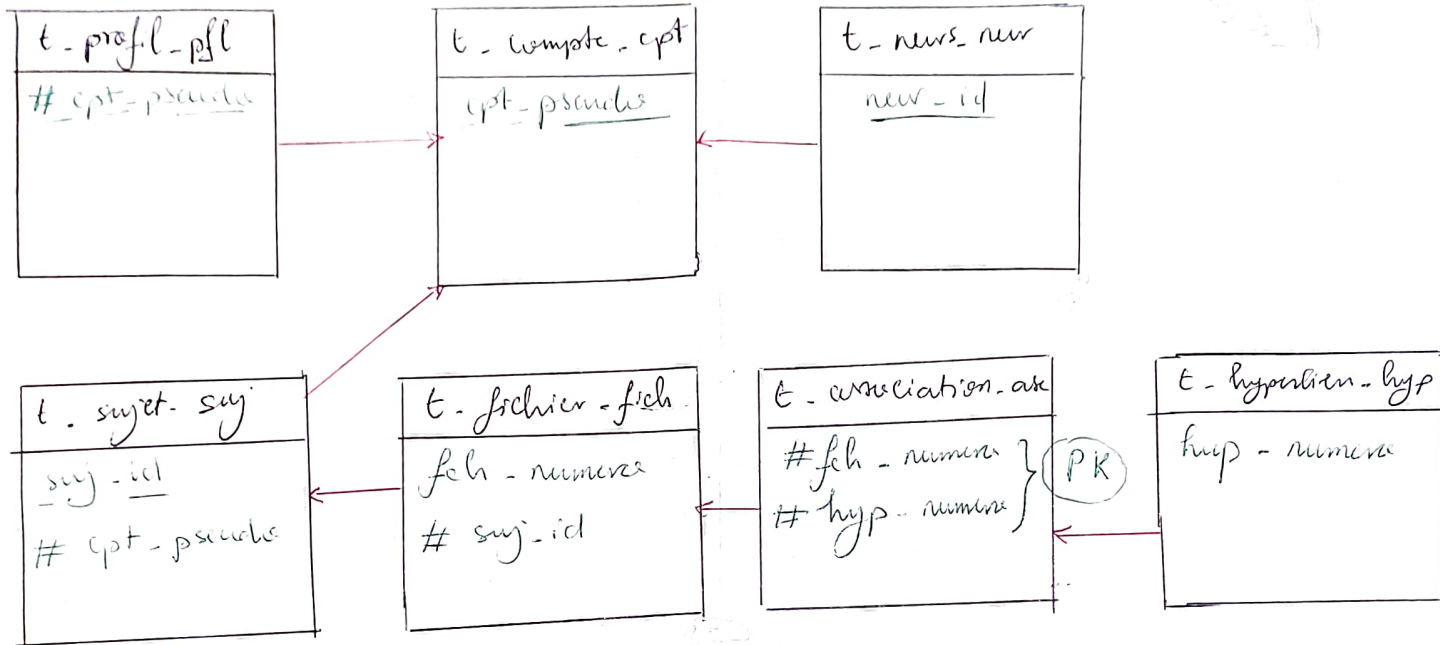 t_profil_pfl
# cpt_pseudo
t_compte_cpt
cpt_pseudo
t_news_new
new_id
t_sujet_suj
suj_id
# cpt_pseudo
t_fichier_fich
fch_numero
# suj_id
t_association_asc
# fch_numero
# hyp_numero
PK
t_hyperlien_hyp
hyp_numero